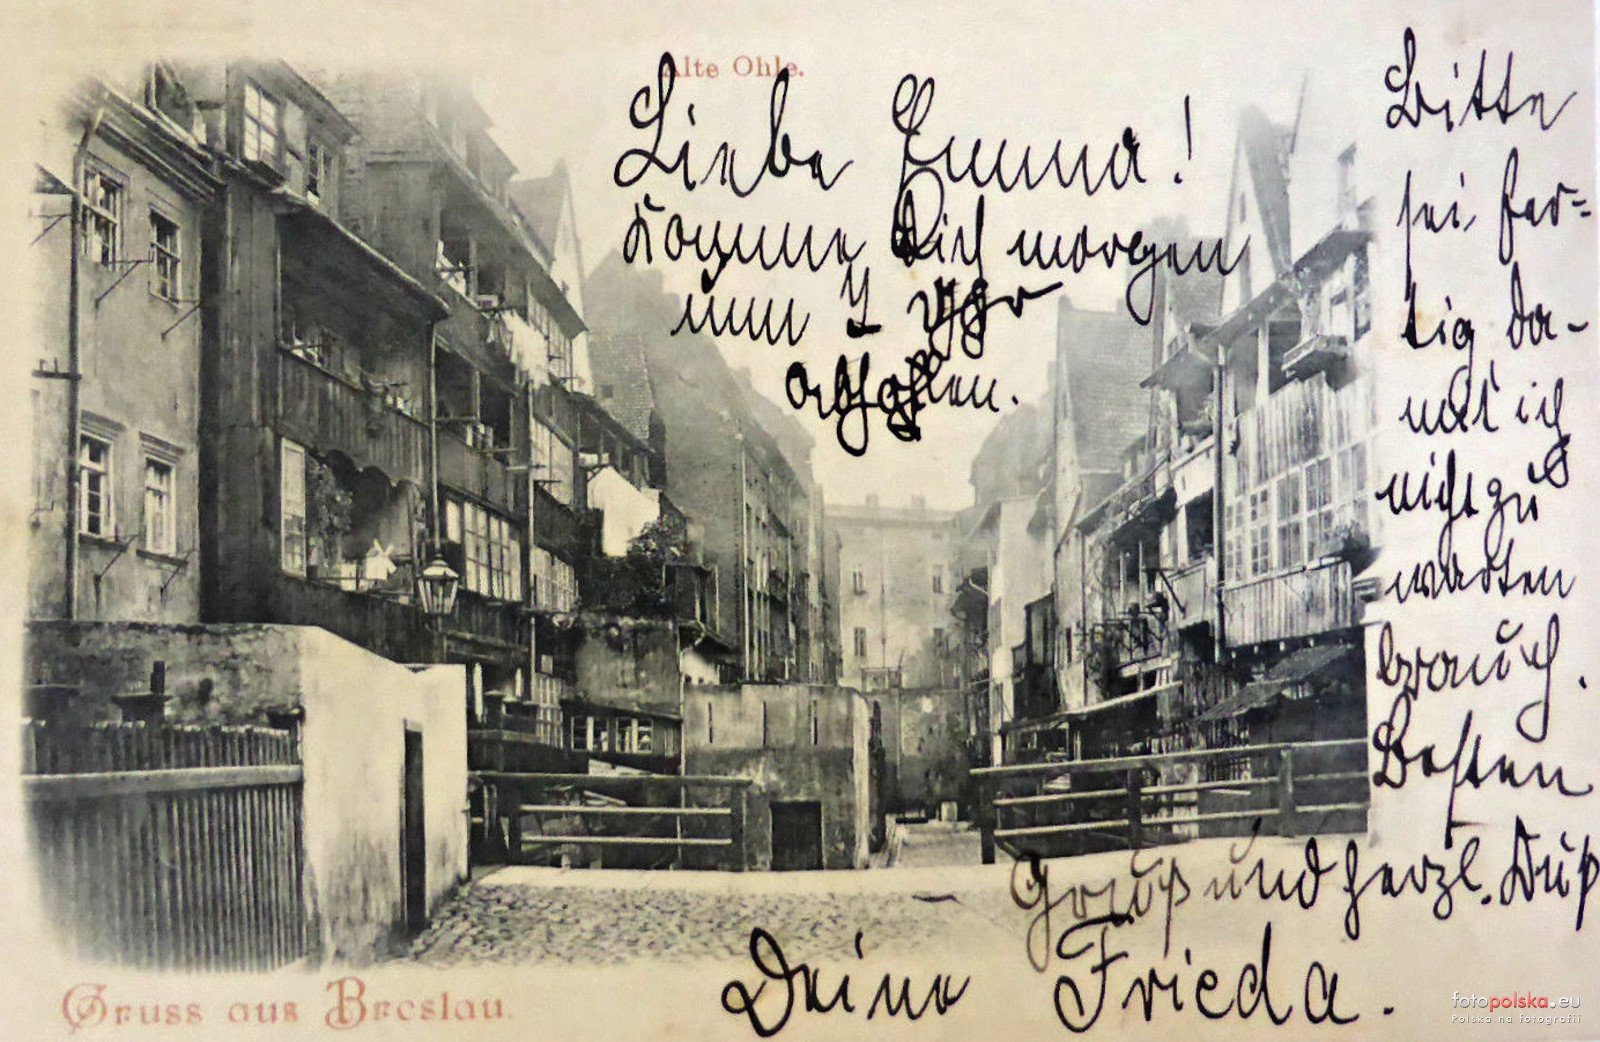 Alte Ohle.
Liebe Emma!
Komme Dich morgen
um 2 Uhr
abholen.
Bitte
sei fer=
tig, da-
mit ich
nicht zu
warten
brauch.
Besten
Gruß und herzl. Kuß
Deine Frieda.
Gruss aus Breslau.
fotopolska.eu
Polska na fotografii